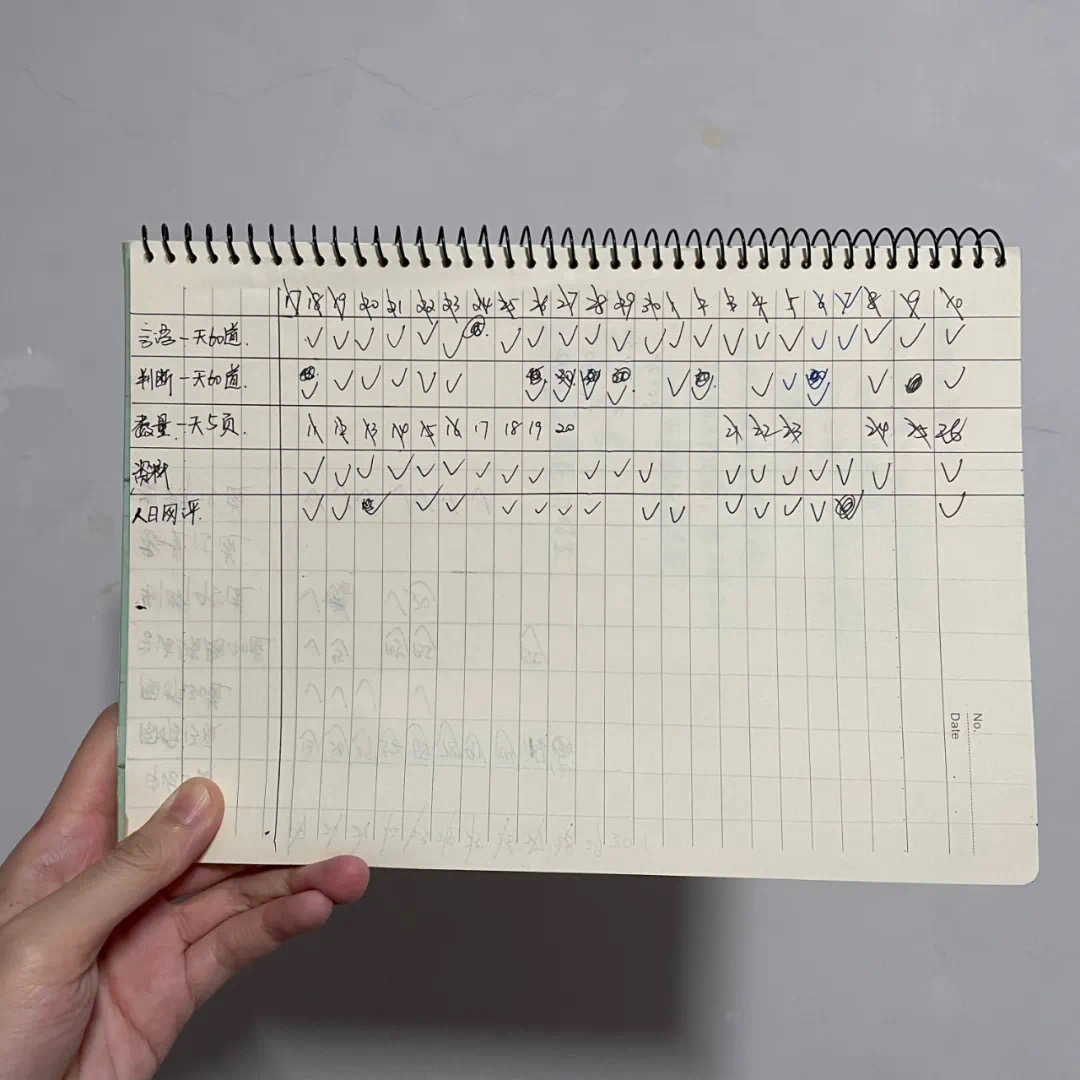 17 18 19 20 21 22 23 24 25 26 27 28 29 30 1 2 3 4 5 6 7 8 9 10
言语一天60道.
判断一天60道.
数量一天5页. 11 12 13 14 15 16 17 18 19 20 21 22 23 24 25 26
资料
人日网评.
No.
Date